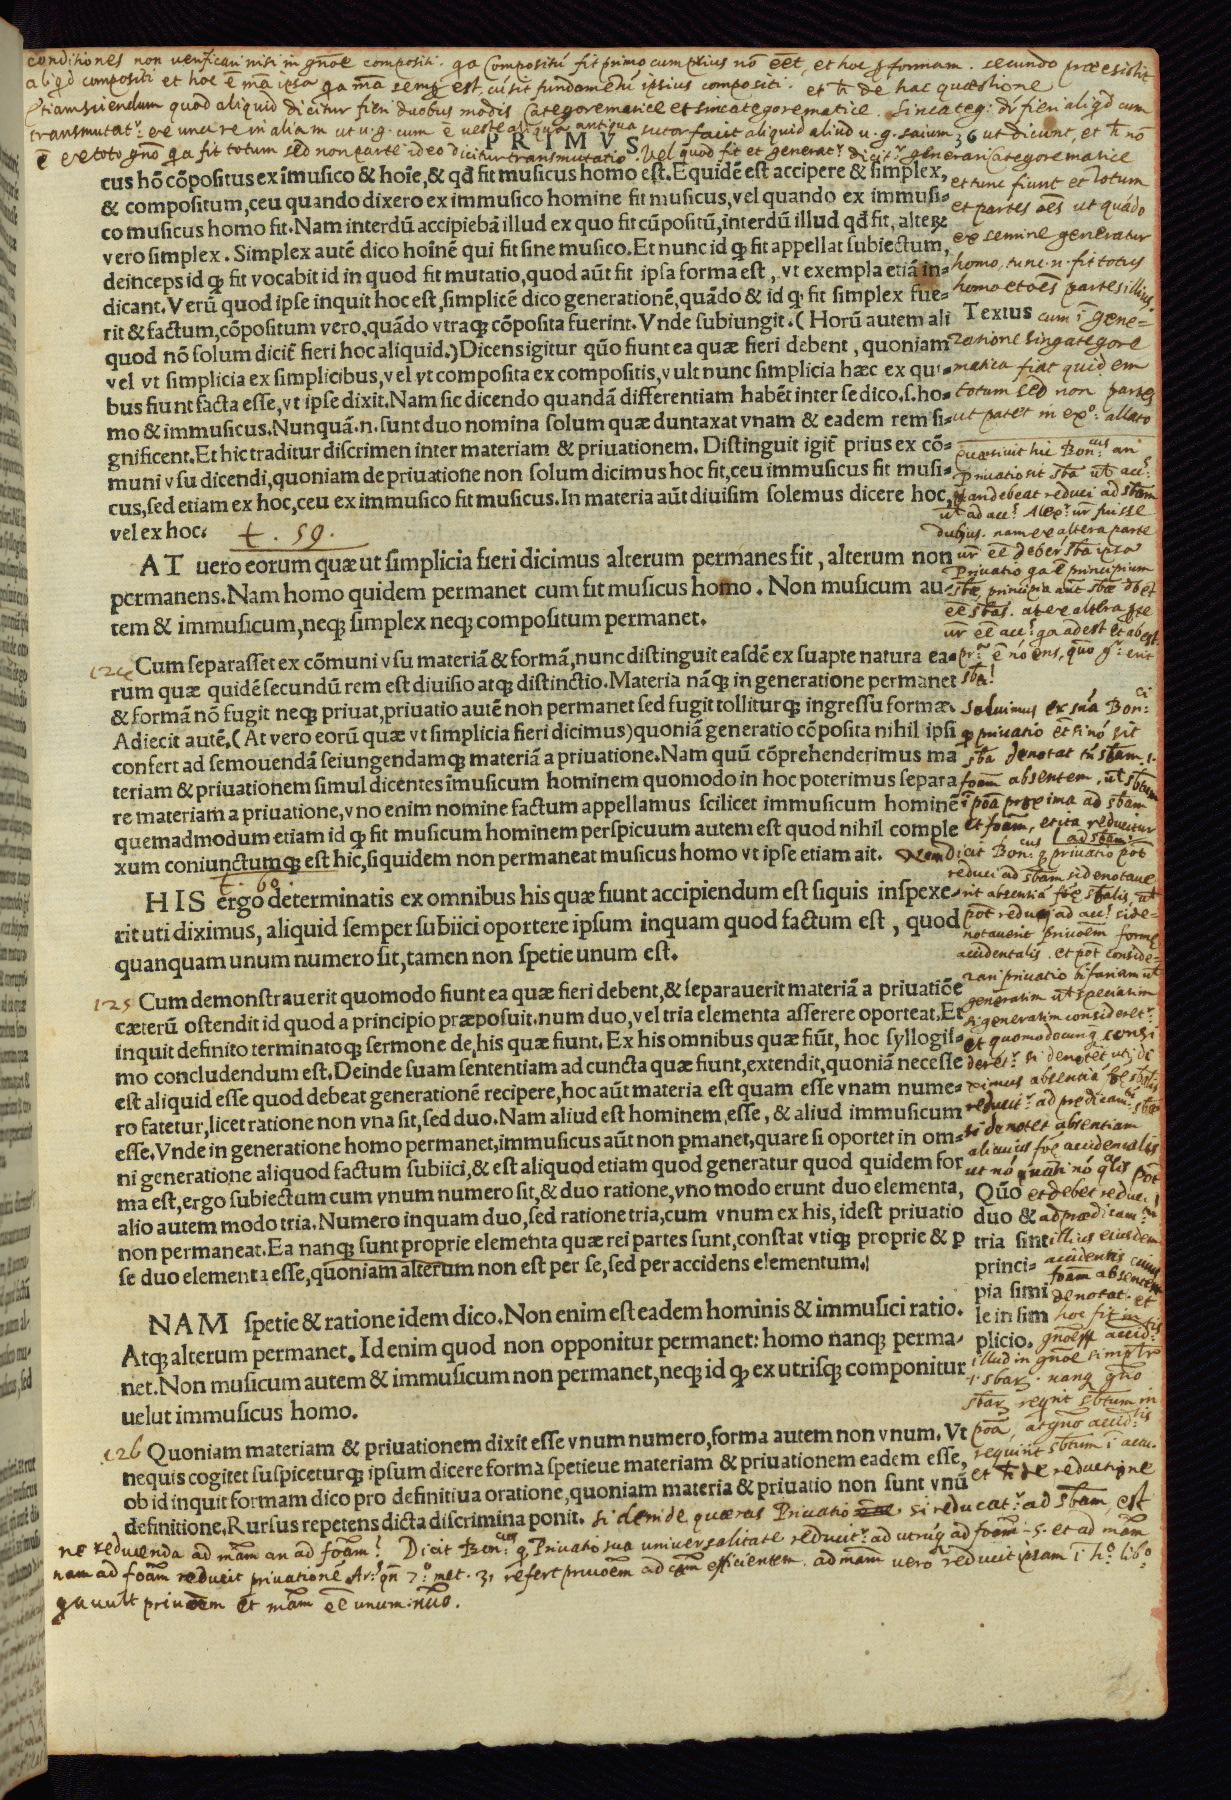 conditiones non verificari nisi in gn̄oe compositi. qa Compositū fit primo cum prius nō eēt, et hoc ꝑ formam. secundo præexistit
aliqd compositi et hoc ē mā ipsa qa mā semꝑ est, cū sit fundamentū ipsius compositi. et h̄ de hac quæstione
Etiam sciendum quod aliquid dicitur fieri duobus modis Categorematice et sincategorematice. Sincateg: dr̄ fieri aliqd cum
transmutatr. ex una re in aliam ut u.g. cum ē vestis aliqua antiqua sutor facit aliquid aliud u.g. saium 36 ut dicunt, et h̄ nō
PRIMVS
ē ex toto gn̄o qa fit totum sed non parte ideo dicitur transmutatio. Vel quod fit et generatr dicitr generari Categorematice
cus hō cōpositus ex īmusico & hoīe, & qđ fit musicus homo est. Equidē est accipere & simplex,
& compositum, ceu quando dixero ex immusico homine fit musicus, vel quando ex immusi-
co musicus homo fit. Nam interdū accipiebā illud ex quo fit cūpositū, interdū illud qđ fit, alteꝝ
vero simplex. Simplex autē dico hoīnē qui fit sine musico. Et nunc id ꝙ fit appellat subiectum,
deinceps id ꝙ fit vocabit id in quod fit mutatio, quod aūt fit ipsa forma est, vt exempla etiā in-
dicant. Verū quod ipse inquit hoc est, simplicē dico generationē, quādo & id ꝙ fit simplex fue-
rit & factum, cōpositum vero, quādo vtraqꝫ cōposita fuerint. Vnde subiungit. (Horū autem ali
quod nō solum dicit̄ fieri hoc aliquid.) Dicens igitur quō fiunt ea quæ fieri debent, quoniam
vel vt simplicia ex simplicibus, vel vt composita ex compositis, vult nunc simplicia hæc ex qui-
bus fiunt facta esse, vt ipse dixit. Nam sic dicendo quandā differentiam habēt inter se dico. s. ho-
mo & immusicus. Nunquā. n. sunt duo nomina solum quæ duntaxat vnam & eadem rem si-
gnificent. Et hic traditur discrimen inter materiam & priuationem. Distinguit igit̄ prius ex cō-
muni vsu dicendi, quoniam de priuatione non solum dicimus hoc fit, ceu immusicus fit musi-
cus, sed etiam ex hoc, ceu ex immusico fit musicus. In materia aūt diuisim solemus dicere hoc,
vel ex hoc.
t. 59.
AT uero eorum quæ ut simplicia fieri dicimus alterum permanes fit, alterum non
permanens. Nam homo quidem permanet cum fit musicus homo. Non musicum au-
tem & immusicum, neqꝫ simplex neqꝫ compositum permanet.
124
Cum separasset ex cōmuni vsu materiā & formā, nunc distinguit easdē ex suapte natura ea-
rum quæ quidē secundū rem est diuisio atqꝫ distinctio. Materia nāqꝫ in generatione permanet
& formā nō fugit neqꝫ priuat, priuatio autē non permanet sed fugit tolliturqꝫ ingressu formæ.
Adiecit autē, (At vero eorū quæ vt simplicia fieri dicimus) quoniā generatio cōposita nihil ipsi
confert ad semouendā seiungendamqꝫ materiā a priuatione. Nam quū cōprehenderimus ma
teriam & priuationem simul dicentes īmusicum hominem quomodo in hoc poterimus separa
re materiam a priuatione, vno enim nomine factum appellamus scilicet immusicum hominē
quemadmodum etiam id ꝙ fit musicum hominem perspicuum autem est quod nihil comple
xum coniunctumqꝫ est hic, siquidem non permaneat musicus homo vt ipse etiam ait.
t. 60
HIS ergo determinatis ex omnibus his quæ fiunt accipiendum est siquis inspexe-
rit uti diximus, aliquid semper subiici oportere ipsum inquam quod factum est, quod
quanquam unum numero sit, tamen non spetie unum est.
125
Cum demonstrauerit quomodo fiunt ea quæ fieri debent, & separauerit materiā a priuatiōe
cæterū ostendit id quod a principio præposuit. num duo, vel tria elementa asserere oporteat. Et
inquit definito terminatoqꝫ sermone de his quæ fiunt. Ex his omnibus quæ fiūt, hoc syllogis-
mo concludendum est. Deinde suam sententiam ad cuncta quæ fiunt, extendit, quoniā necesse
est aliquid esse quod debeat generationē recipere, hoc aūt materia est quam esse vnam nume-
ro fatetur, licet ratione non vna sit, sed duo. Nam aliud est hominem, esse, & aliud immusicum
esse. Vnde in generatione homo permanet, immusicus aūt non ꝑmanet, quare si oportet in om-
ni generatione aliquod factum subiici, & est aliquod etiam quod generatur quod quidem for
ma est, ergo subiectum cum vnum numero sit, & duo ratione, vno modo erunt duo elementa,
alio autem modo tria. Numero inquam duo, sed ratione tria, cum vnum ex his, idest priuatio
non permaneat. Ea nanqꝫ sunt proprie elementa quæ rei partes sunt, constat vtiqꝫ proprie & ꝑ
se duo elementa esse, quoniam alterum non est per se, sed per accidens elementum.
NAM spetie & ratione idem dico. Non enim est eadem hominis & immusici ratio.
Atqꝫ alterum permanet. Id enim quod non opponitur permanet: homo nanqꝫ perma-
net. Non musicum autem & immusicum non permanet, neqꝫ id ꝙ ex utrisqꝫ componitur
uelut immusicus homo.
126
Quoniam materiam & priuationem dixit esse vnum numero, forma autem non vnum. Vt
nequis cogitet suspiceturqꝫ ipsum dicere forma spetieue materiam & priuationem eadem esse,
ob id inquit formam dico pro definitiua oratione, quoniam materia & priuatio non sunt vnū
definitione. Rursus repetens dicta discrimina ponit.
si deinde quæras Privatio si reducatr ad sbam, est
ne reducenda ad mām an ad foam? Dicit Bon:cus ꝙ Privatio sua universalitate reducitr ad utrūqꝫ ad foam. s. et ad mām
nam ad foam reducit privatione Ar: qn̄ 2o met. 31 refert privoēm ad cām efficientem. ad mām vero reducit ipsam ī ho libo
qa vult privoēm et mām eē unum nūo.
et tunc fiunt et totum
et partes oēs ut quādo
ex semine generatur
homo. tunc. n. fit totus
homo et oēs partes illius
Textus
cum ī gene-
ratione singategore
matica fiat quidem
totum sed non partes
ut patet in exo: allato
quæsivit hic Bon:cus an
Privatio sit sba vel acc:
dubius. nam ex altera parte
Privatio qa ē principium
sbæ, principia aūt sbæ dbēt
eē sbas. at ex altera pte
ur̄ eē acc: qa adest et abest
sba!
Solvimus ex snā Bon:ci
ꝙ privatio etsi nō sit
sba denotat tn̄ sbam. s.
foam absentem, vel sbtum
ī poā proxima ad sbam
et foam, et ita reducitur
ad sbam.
Dicit Bon:cus ꝙ privatio pōt
reduci ad sbam si denotave
rit absentiā foæ sbalis, vel
pōt reduci ad acc: si de-
notaverit privoēm formæ
accidentalis. et pōt conside-
rari privatio bifariam vel
generatim vel speciatim
si generatim consideretr
et quomodocunqꝫ consi
deretr si denotet uti di
ximus absentiā foæ sbalis
reducitr ad predicam: sbæ
si denotet absentiam
alicuius foæ accidentalis
Quō
et debet reduci
duo &
ad prædicam:
tria sint
illius eiusdem
princi-
accidentis cuius
foam absentem
pia simi
denotat. et
le in sim
hoc fit in
plicio.
illud in gn̄oe simplr
i. sbaꝝ. nanqꝫ gn̄o
sbaꝝ reqrit sbtum in
poā, at gn̄o accid:tis
requirit sbtum ī actu.
et h̄ de reductione